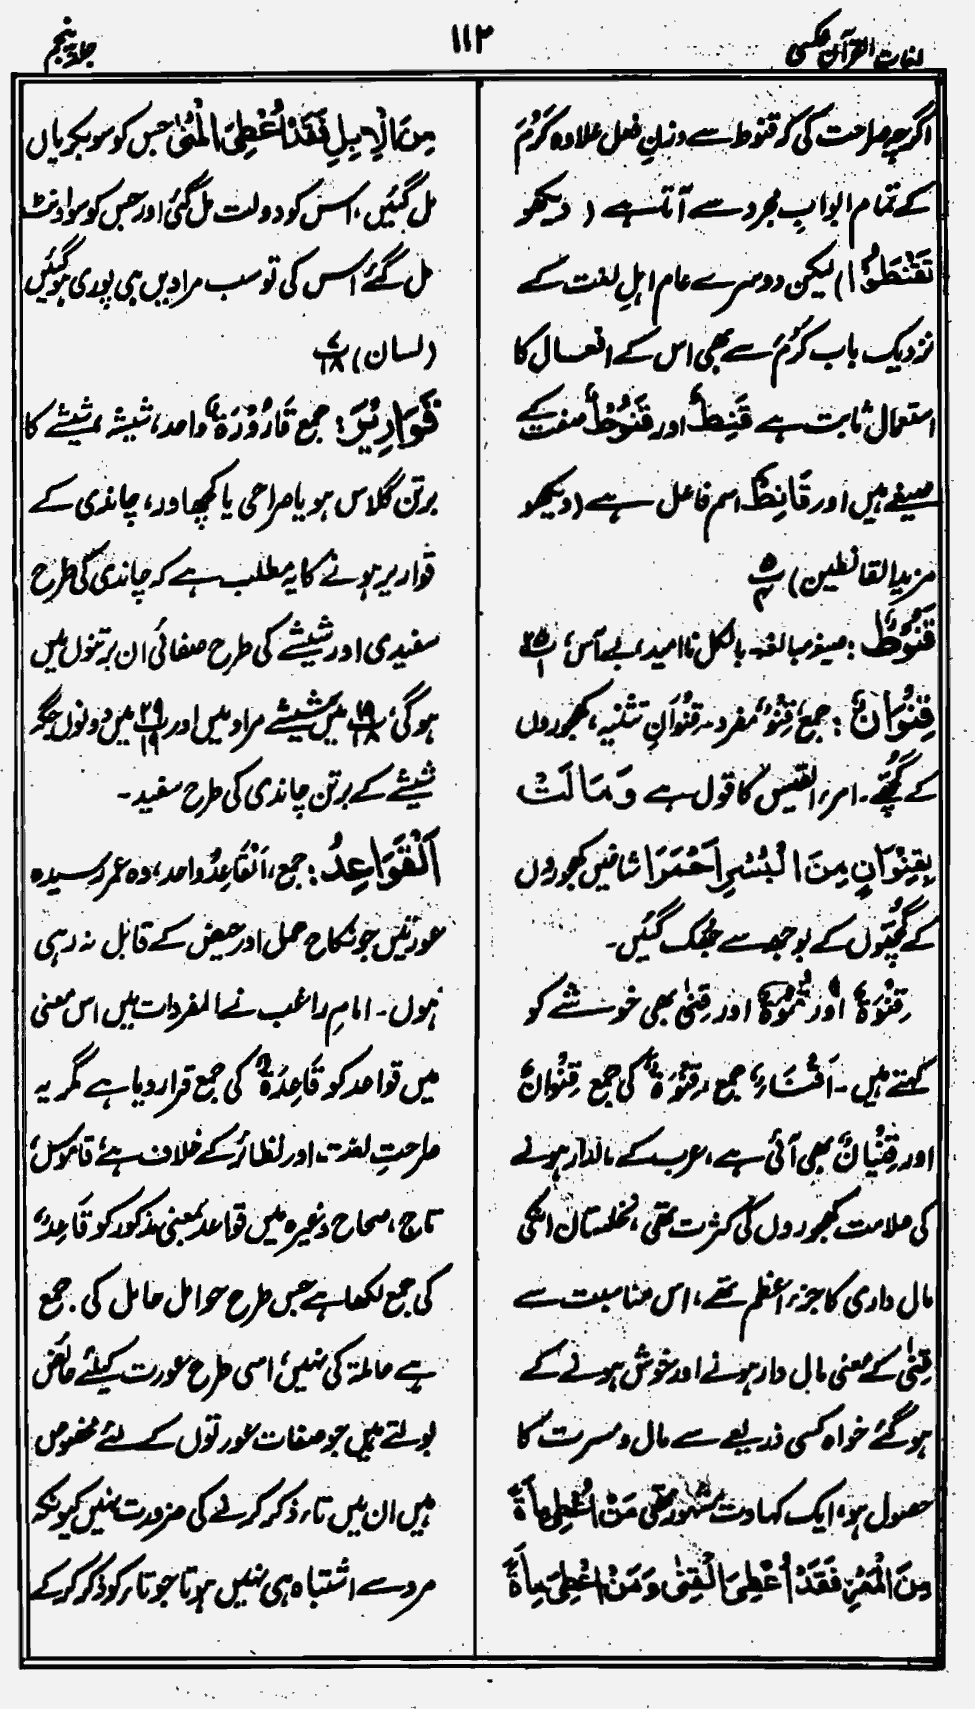 لغات القرآن عکسی
۱۱۲
جلد پنجم
اگرچہ صراحت کی کہ قنوط سے وزنِ فعل علاوہ کَرُمَ
کے تمام ابوابِ مجرد سے آتا ہے ( دیکھو
تَقْنَطُوْا ) لیکن دوسرے عام اہلِ لغت کے
نزدیک باب کَرُمَ سے بھی اس کے افعال کا
استعمال ثابت ہے قَنِطٌ اور قَنُوْطٌ صفت کے
صیغے ہیں اور قَانِطٌ اسم فاعل ہے (دیکھو
مزید القانطین) ۵
۴
قَنُوْطٌ : صیغہ مبالغہ بالکل ناامید، بے آس، ۲۵
۱
قِنْوَانٌ : جمع، قِنْوٌ مفرد۔ قِنْوَانِ تثنیہ، کھجوروں
کے گچھے۔ امرء القیس کا قول ہے وَمَالَتْ
بِقِنْوَانٍ مِنَ الْبُسْرِ اَحْمَرَا شاخیں کھجوروں
کے گچھوں کے بوجھ سے جھک گئیں۔
قِنْوَةٌ اور قُنْوَةٌ اور قِنیٰ بھی خوشے کو
کہتے ہیں۔ اَقْنَاء، جمع، قِنْوَةٌ کی جمع قِنْوَانٌ
اور قِنْیَانٌ بھی آئی ہے، عرب کے مالدار ہونے
کی علامت کھجوروں کی کثرت تھی، نخلستان انکی
مال داری کا جزء اعظم تھے، اس مناسبت سے
قِنیٰ کے معنی مال دار ہونے اور خوش ہونے کے
ہوگئے خواہ کسی ذریعے سے مال و مسرت کا
حصول ہو، ایک کہاوت مشہور تھی مَنْ اُعْطِیَ مِأَةً
مِنَ الْمَعْزِ فَقَدْ اُعْطِیَ الْقِنیٰ وَمَنْ اُعْطِیَ مِأَةً
مِنَ الْاِبِلِ فَقَدْ اُعْطِیَ الْمُنیٰ جس کو سو بکریاں
مل گئیں، اس کو دولت مل گئی اور جس کو سو اونٹ
مل گئے اس کی تو سب مرادیں ہی پوری ہوگئیں
(لسان) ۷
۱۸
قَوَارِیْرَ : جمع قَارُوْرَةٌ واحد، شیشہ، شیشے کا
برتن گلاس ہو یا صراحی یا کچھ اور، چاندی کے
قواریر ہونے کا یہ مطلب ہے کہ چاندی کی طرح
سفیدی اور شیشے کی طرح صفائی ان برتنوں میں
ہوگی، ۱۹ میں شیشے مراد ہیں اور ۲۹ میں دونوں جگہ
۱۸ ۱۹
شیشے کے برتن چاندی کی طرح سفید۔
اَلْقَوَاعِدُ : جمع، اَلْقَاعِدُ واحد، وہ عمر رسیدہ
عورتیں جو نکاح حمل اور حیض کے قابل نہ رہی
ہوں۔ امام راغب نے المفردات میں اس معنی
میں قواعد کو قَاعِدَةٌ کی جمع قرار دیا ہے مگر یہ
صراحتِ لغت اور نظائر کے خلاف ہے، قاموس،
تاج، صحاح وغیرہ میں قواعد بمعنی مذکور کو قَاعِدٌ
کی جمع لکھا ہے جس طرح حوامل حامل کی جمع
ہے حاملۃ کی نہیں، اسی طرح عورت کیلئے حائض
بولتے ہیں جو صفات عورتوں کے لئے مخصوص
ہیں ان میں تاء ذکر کرنے کی ضرورت نہیں کیونکہ
مرد سے اشتباہ ہی نہیں ہوتا جو تاء کو ذکر کرکے